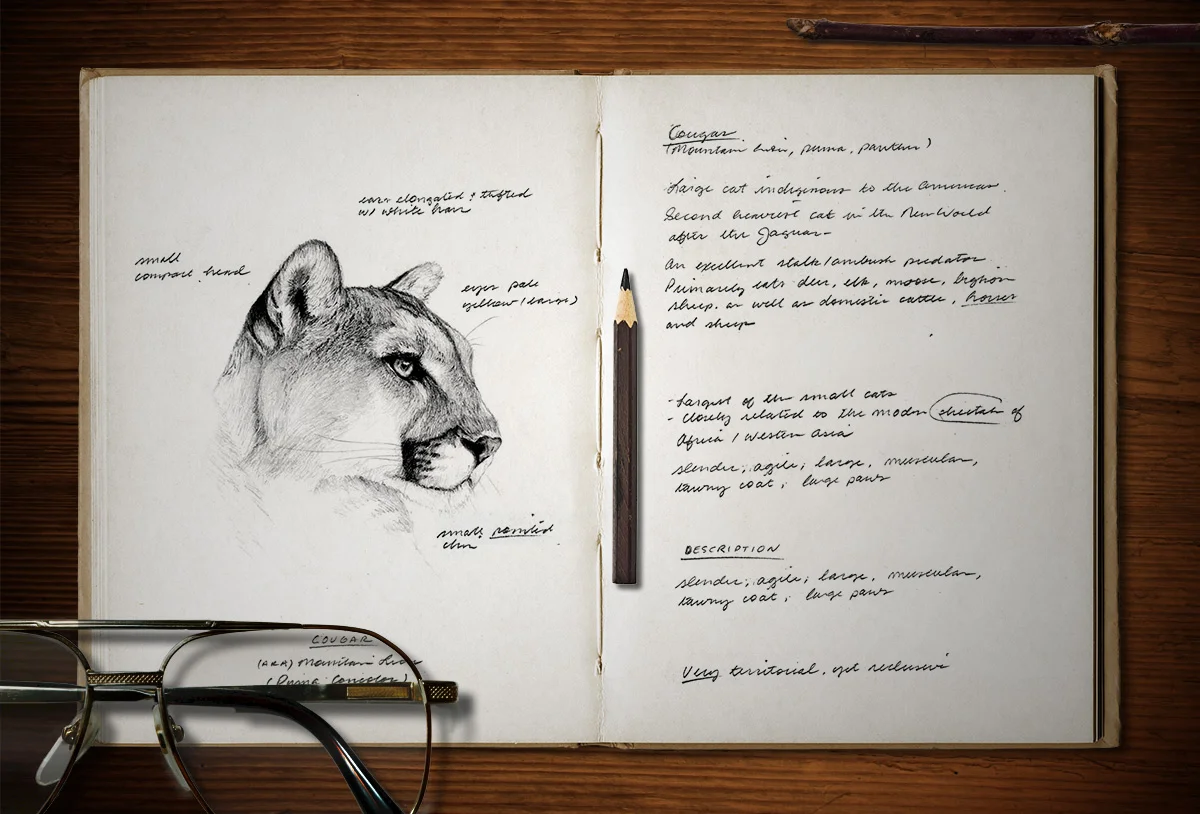 ears elongated & tufted
w/ white hair
small
compact head
eyes pale
yellow (large)
small pointed
chin
COUGAR
(AKA) Mountain Lion
(Puma Concolor)
Cougar
(Mountain Lion, puma, panther)
Large cat indiginous to the Americas.
Second heaviest cat in the New World
after the Jaguar-
An excellent stalk/ambush predator
Primarily eats deer, elk, moose, bighorn
sheep. as well as domestic cattle, horses
and sheep
- Largest of the small cats
- Closely related to the modern cheetah of
Africa / Western Asia
slender, agile, large, muscular,
tawny coat, large paws
DESCRIPTION
slender, agile, large, muscular,
tawny coat, large paws
Very territorial, yet reclusive